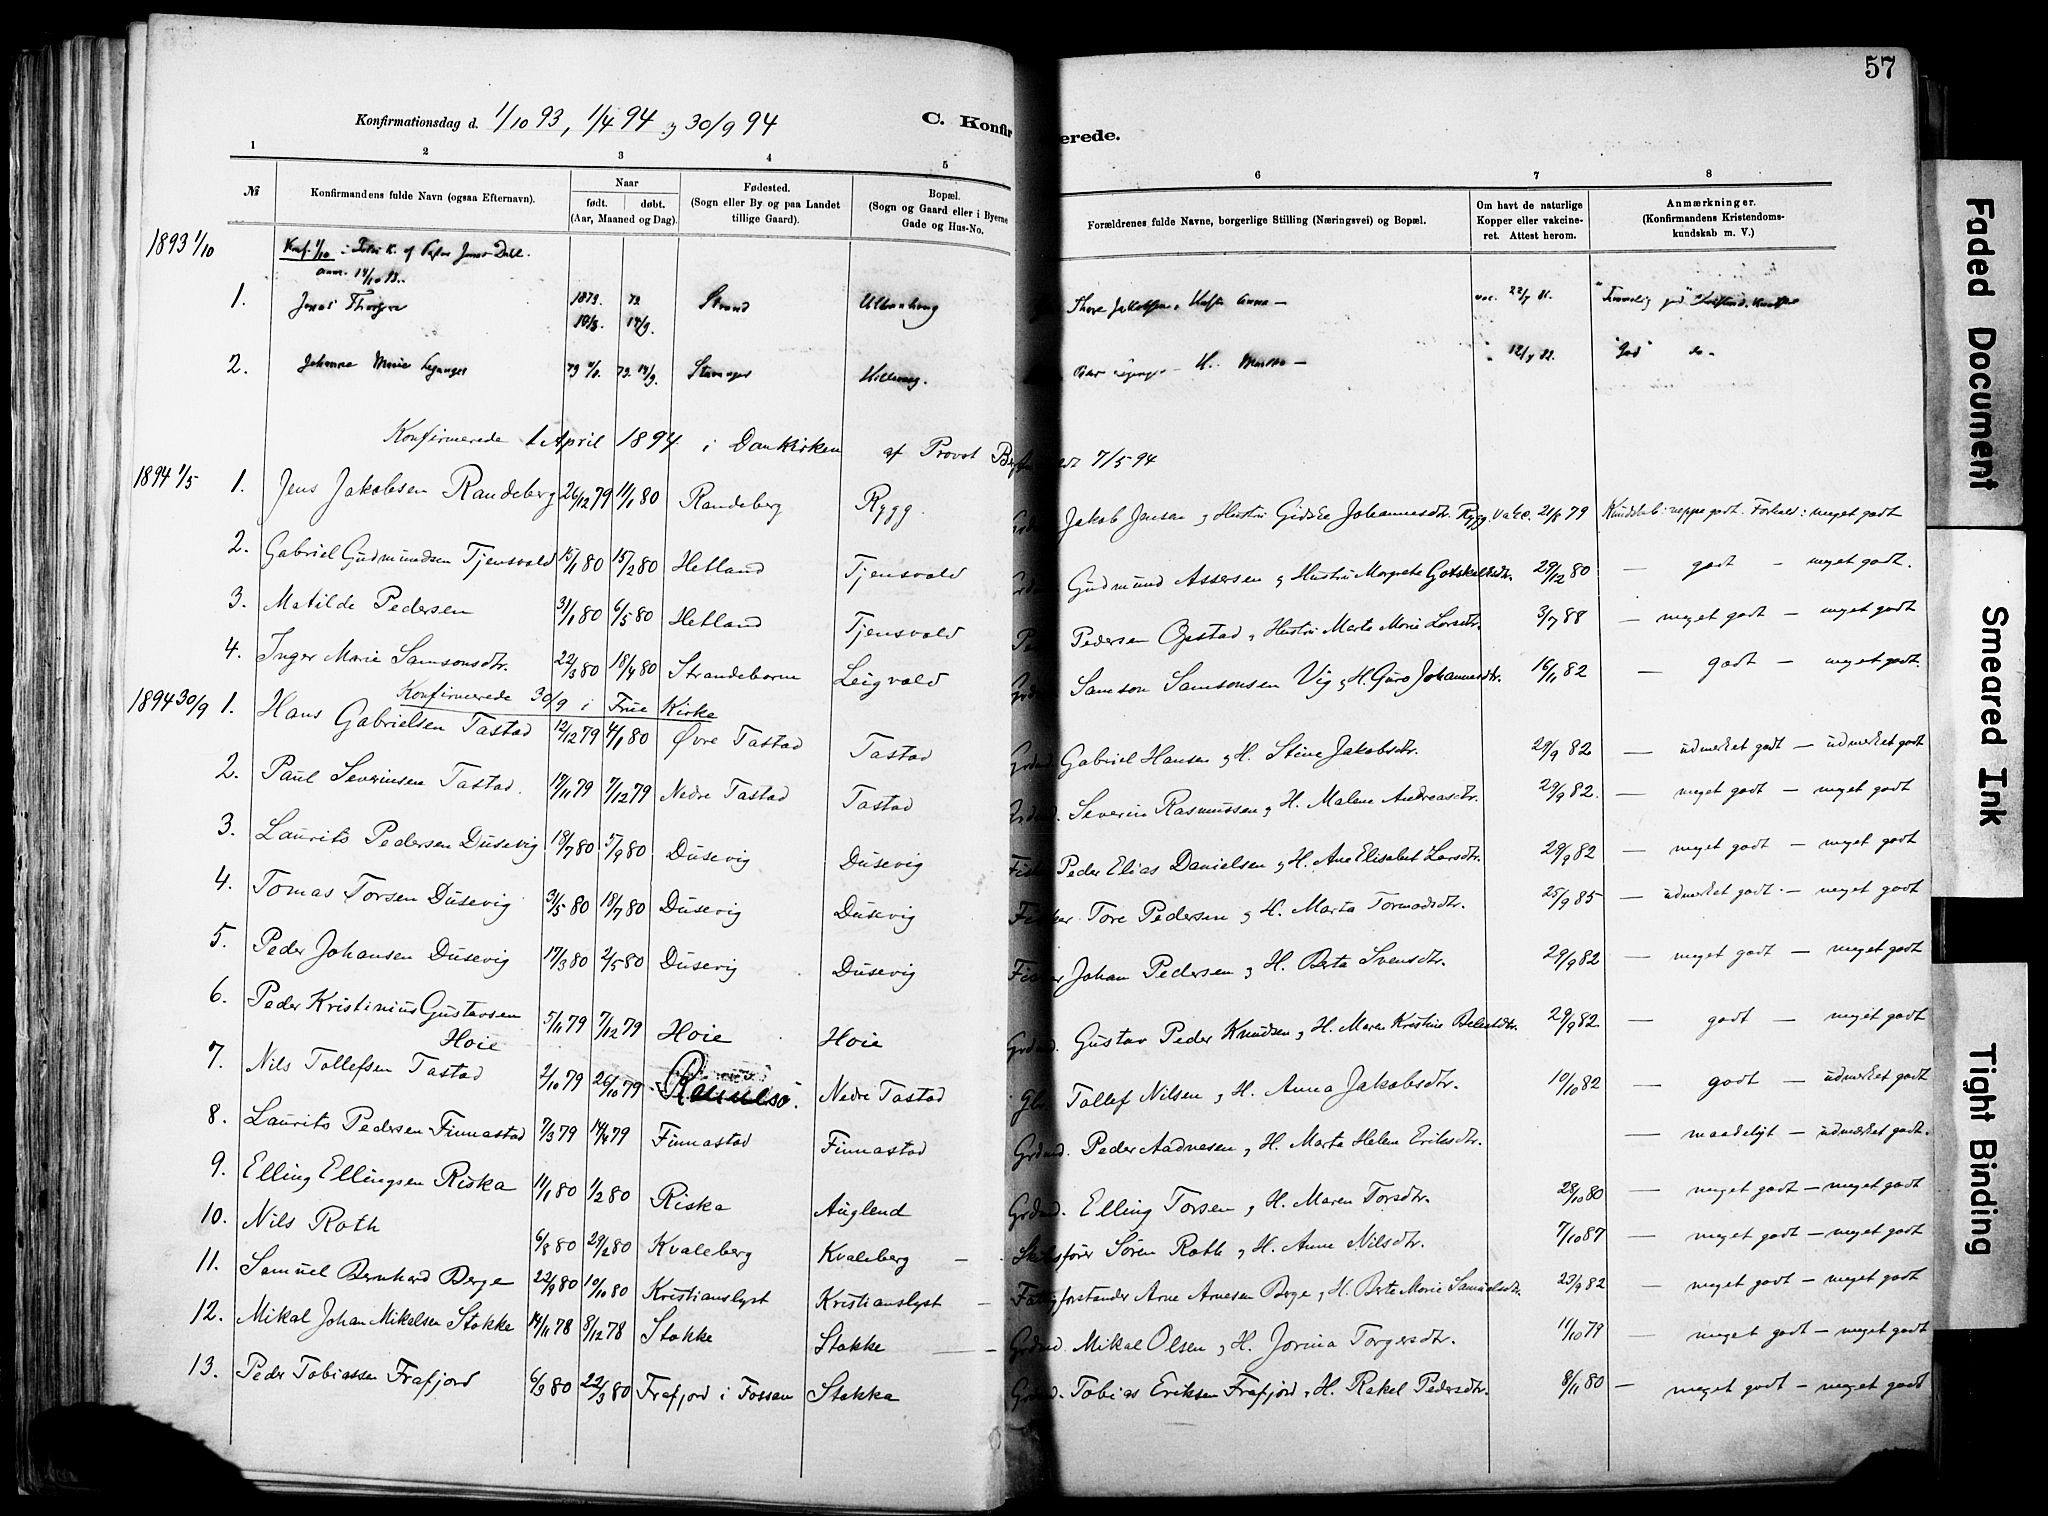 57
Konfirmationsdag d. 1/10 93, 1/4 94 & 30/9 94 C. Konfir erede.
1 2 3 4 5 6 7 8
№ Konfirmandens fulde Navn (ogsaa Efternavn). Naar født. døbt. (Aar, Maaned og Dag). Fødested. (Sogn eller By og paa Landet tillige Gaard). Bopæl. (Sogn og Gaard eller i Byerne Gade og Hus-No. Forældrenes fulde Navne, borgerlige Stilling (Næringsvei) og Bopæl. Om havt de naturlige Kopper eller vakcineret. Attest herom. Anmærkninger. (Konfirmandens Kristendomskundskab m. V.)
1893 1/10 Konf. 1/10 i K. af Jonas Dahl.
anm. 14/10 93.
1. Jonas 1879 10/8 79 14/9. Strand Thore Jakobsen, Anna — vac. 22/9 81.
2. Johanne Marie 79 79 14/9. Stavanger "God" do -
Konfirmerede 1 April 1894 i Domkirken af Provst 7/5 94
1894 1/5 1. Jens Jakobsen Randeberg 26/12 79 11/1 80 Randeberg Rygg. Jakob Jensen & Hustru Gidske Johannesdtr. Rygg. Vakc. 21/8 79 Kundskab: neppe godt. Forhold: meget godt
2. Gabriel Gudmundsen Tjensvold 15/1 80 15/2 80 Hetland Tjensvold Gudmund Assersen & Hustru Margrete Gotskalksdtr. 29/12 80 — godt — meget godt.
3. Matilde Pedersen 31/1 80 6/5 80 Hetland Tjensvold Pedersen Opstad & Hustru Marta Marie Larsdtr. 3/7 88 — meget godt — meget godt
4. Inger Marie Samsonsdtr. 22/3 80 18/4 80 Strandeborne Leigvold Samson Samsonsen Vig & H. Guro Johannesdtr. 16/11 82 — godt — meget godt.
Konfirmerede 30/9 i Frue Kirke
1894 30/9 1. Hans Gabrielsen Tastad 12/12 79 4/1 80 Øvre Tastad Tastad Grdmd. Gabriel Hansen & H. Stine Jakobsdtr. 29/9 82 — udmerket godt — udmerket godt
2. Paul Severinsen Tastad. 17/11 79 7/12 79 Nedre Tastad Tastad Grdmd. Severin Rasmussen & H. Malene Andreasdtr. 29/9 82. — meget godt — meget godt
3. Laurits Pedersen Dusevig 18/7 80 5/9 80 Dusevig Dusevig Peder Elias Danielsen & H. Ane Elisabet Larsdtr. 29/9 82 — meget godt — meget godt
4. Tomas Torsen Dusevig 31/5 80 18/7 80 Dusevig Dusevig Fisker Tore Pedersen & H. Marta Tormodsdtr. 25/9 85 — udmerket godt. — meget godt
5. Peder Johansen Dusevig 17/3 80 2/5 80 Dusevig Dusevig Fisker Johan Pedersen & H. Berta Svensdtr. 29/9 82 — meget godt — meget godt
6. Peder Kristinius Gustavsen Hoie 5/11 79 7/12 79 Hoie Hoie Grdmd. Gustav Peder Knudsen & H. Maren Kristine 29/9 82. — godt — meget godt
7. Nils Tollefsen Tastad 2/10 79 26/10 79 Nedre Tastad Tollef Nilsen & H. Anna Jakobsdtr. 10/10 82 — godt — udmerket godt
8. Laurits Pedersen Finnastad 7/3 79 14/4 79 Finnastad Finnastad Grdmd. Peder Aadnesen & H. Marta Helene Eriksdtr. — maadeligt — udmerket godt.
9. Elling Ellingsen Riska 11/1 80 1/2 80 Riska Auglend Grdmd. Elling Torsen & H. Maren Torsdtr. 28/10 80 — meget godt — meget godt
10. Nils Roth 6/8 80 29/8 80 Kvaleberg Kvaleberg — Skibsfører Søren Roth & H. Anne Nilsdtr. 7/10 87 — meget godt — meget godt
11. Samuel Bernhard Berge 22/9 80 10/10 80 Kristianslyst Kristianslyst — Fattigforstander Arne Arnesen Berge & H. Berte Marie Samuelsdtr. 23/9 82 — meget godt — meget godt
12. Mikal Johan Mikelsen Stokke 14/11 78 8/12 78 Stokke Stokke — Grdmd. Mikal Olsen & H. Jorina Torgersdtr. 11/10 79 — meget godt — meget godt
13. Peder Tobiassen Frafjord 6/3 80 22/3 80 Frafjord i Fossan Stokka Grdmd. Tobias Eriksen Frafjord & H. Rakel Pedersdtr. 8/11 80 — meget godt — meget godt
Faded Document
Smeared Ink
Tight Binding